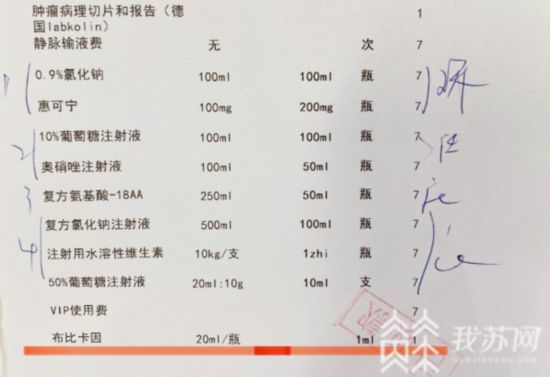 肿瘤病理切片和报告（德 1
国labkolin）
静脉输液费 无 次 7
0.9%氯化钠 100ml 100ml 瓶 7
惠可宁 100mg 200mg 瓶 7
10%葡萄糖注射液 100ml 100ml 瓶 7
奥硝唑注射液 100ml 50ml 瓶 7
复方氨基酸-18AA 250ml 50ml 瓶 7
复方氯化钠注射液 500ml 100ml 瓶 7
注射用水溶性维生素 10kg/支 1zhi 瓶 7
50%葡萄糖注射液 20ml:10g 10ml 支 7
VIP使用费 7
布比卡因 20ml/瓶 1ml 1
1
2
3
4
我苏网
OURJIANGSU.COM